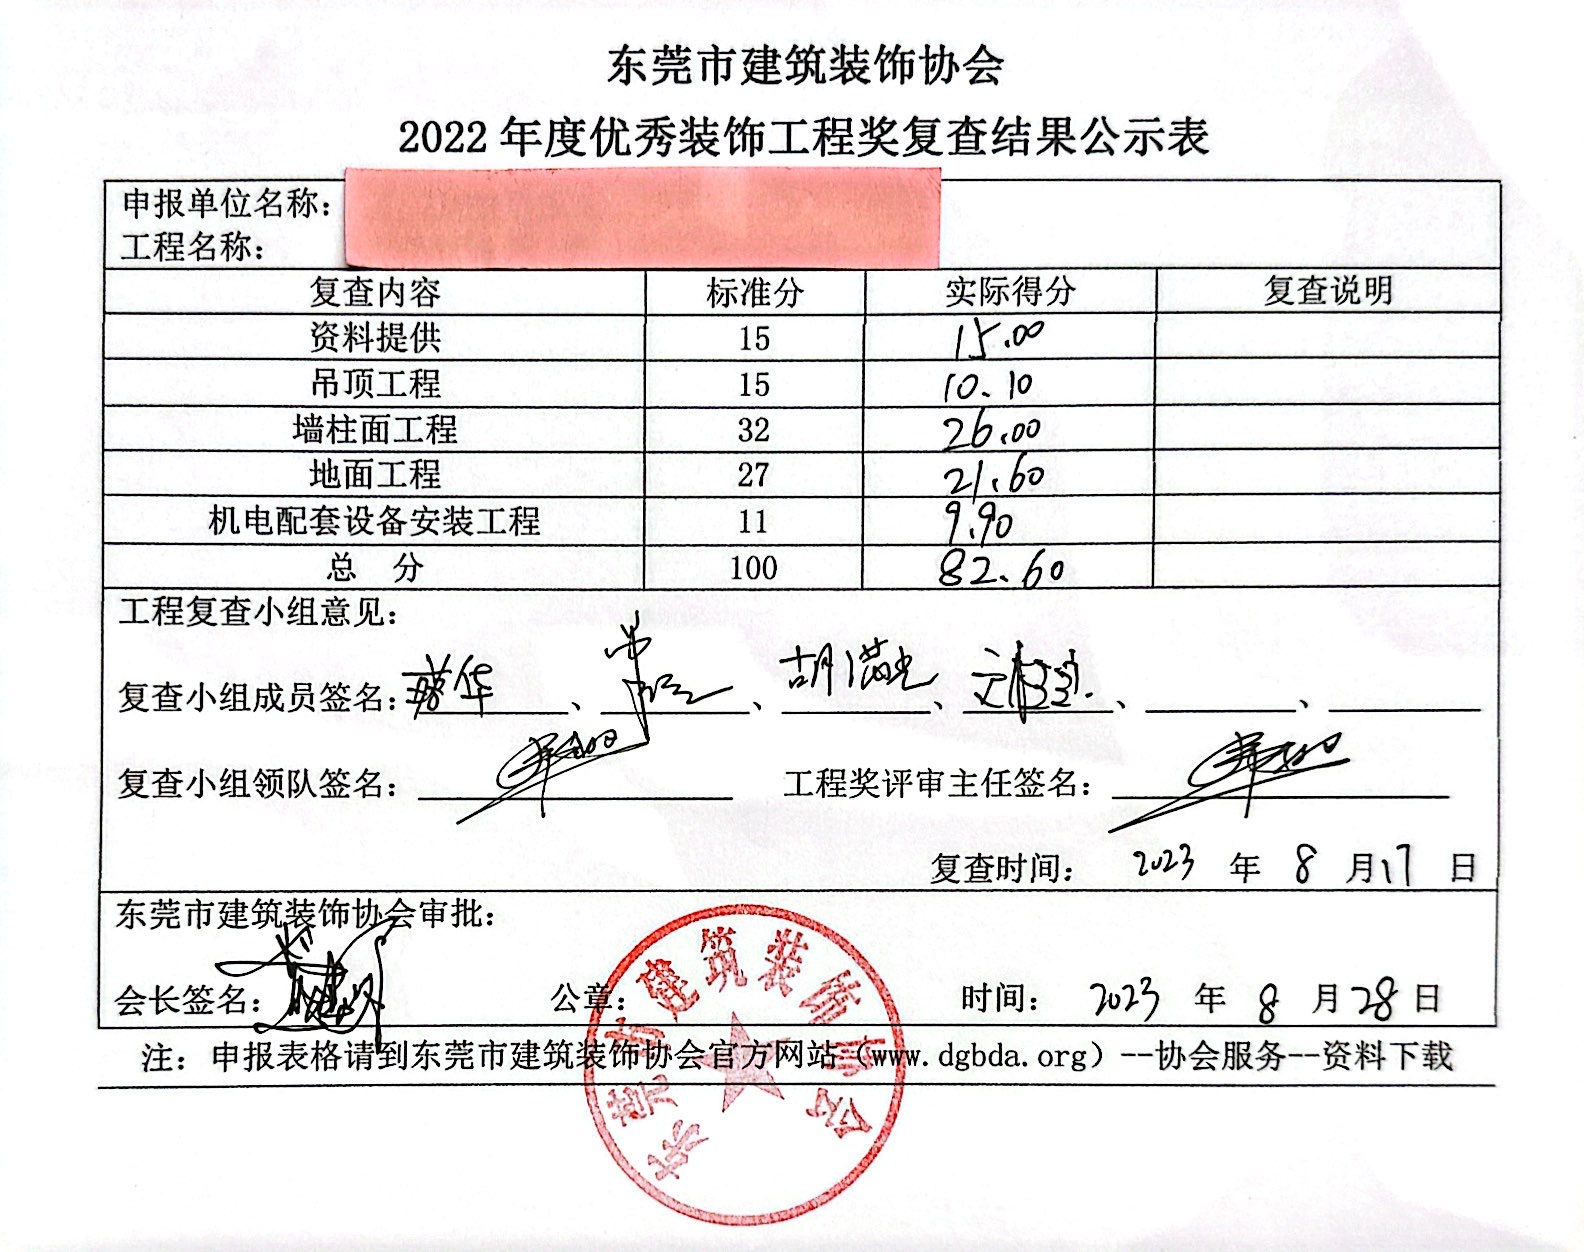 东莞市建筑装饰协会
2022 年度优秀装饰工程奖复查结果公示表
申报单位名称：
工程名称：
复查内容 标准分 实际得分 复查说明
资料提供 15 15.00
吊顶工程 15 10.10
墙柱面工程 32 26.00
地面工程 27 21.60
机电配套设备安装工程 11 9.90
总 分 100 82.60
工程复查小组意见：
复查小组成员签名： 华 、 、 胡满光 、 、 、
复查小组领队签名： 工程奖评审主任签名：
复查时间： 2023 年 8 月 17 日
东莞市建筑装饰协会审批：
会长签名： 公章： 时间： 2023 年 8 月 28 日
东莞市建筑装饰协会
注：申报表格请到东莞市建筑装饰协会官方网站（www.dgbda.org）--协会服务--资料下载